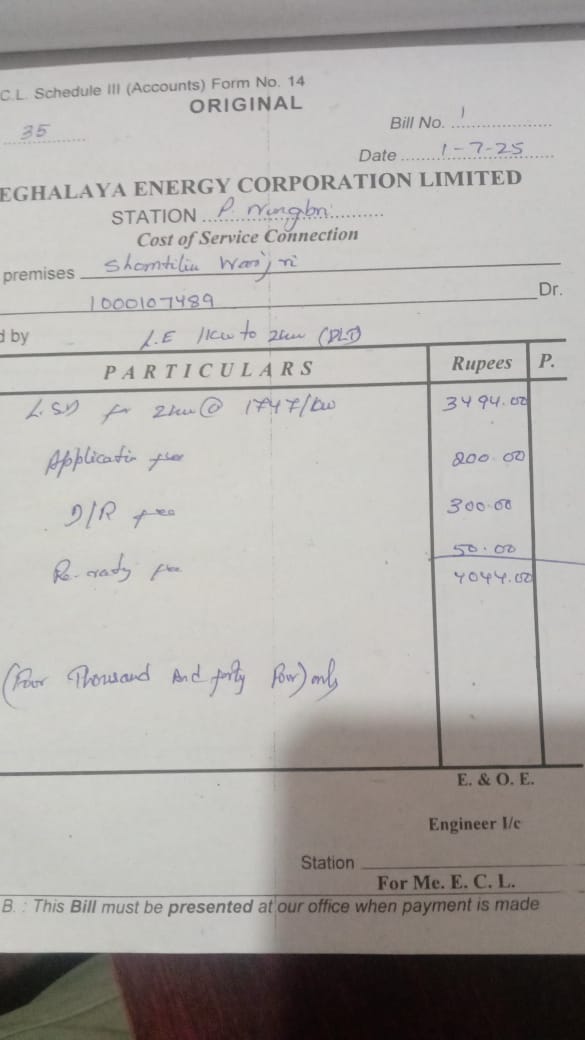 C.L. Schedule III (Accounts) Form No. 14
ORIGINAL
35
Bill No. 1
Date 1-7-25
EGHALAYA ENERGY CORPORATION LIMITED
STATION P.
Cost of Service Connection
premises
1000107489 Dr.
d by L.E 1kw to 2kw (DLT)
PARTICULARS Rupees P.
L.SD for 2kw @ 1747/kw 3494.00
Application fee 200.00
D/R fee 300.00
fee 50.00
4044.00
(Four Thousand And forty Four) only
E. & O. E.
Engineer I/c
Station
For Me. E. C. L.
B. : This Bill must be presented at our office when payment is made